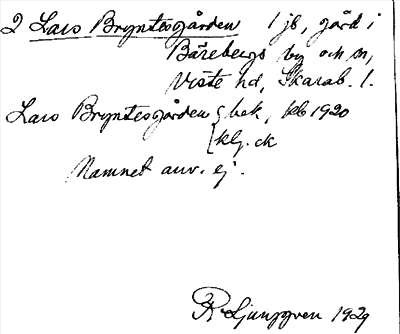 2 Lars Bryntesgården 1 jb, gård i
Bärebergs by och sn,
Viste hd, Skarab. l.
Lars Bryntesgården { bek, jb 1920
klj. ck
Namnet anv. ej.
R Ljunggren 1929